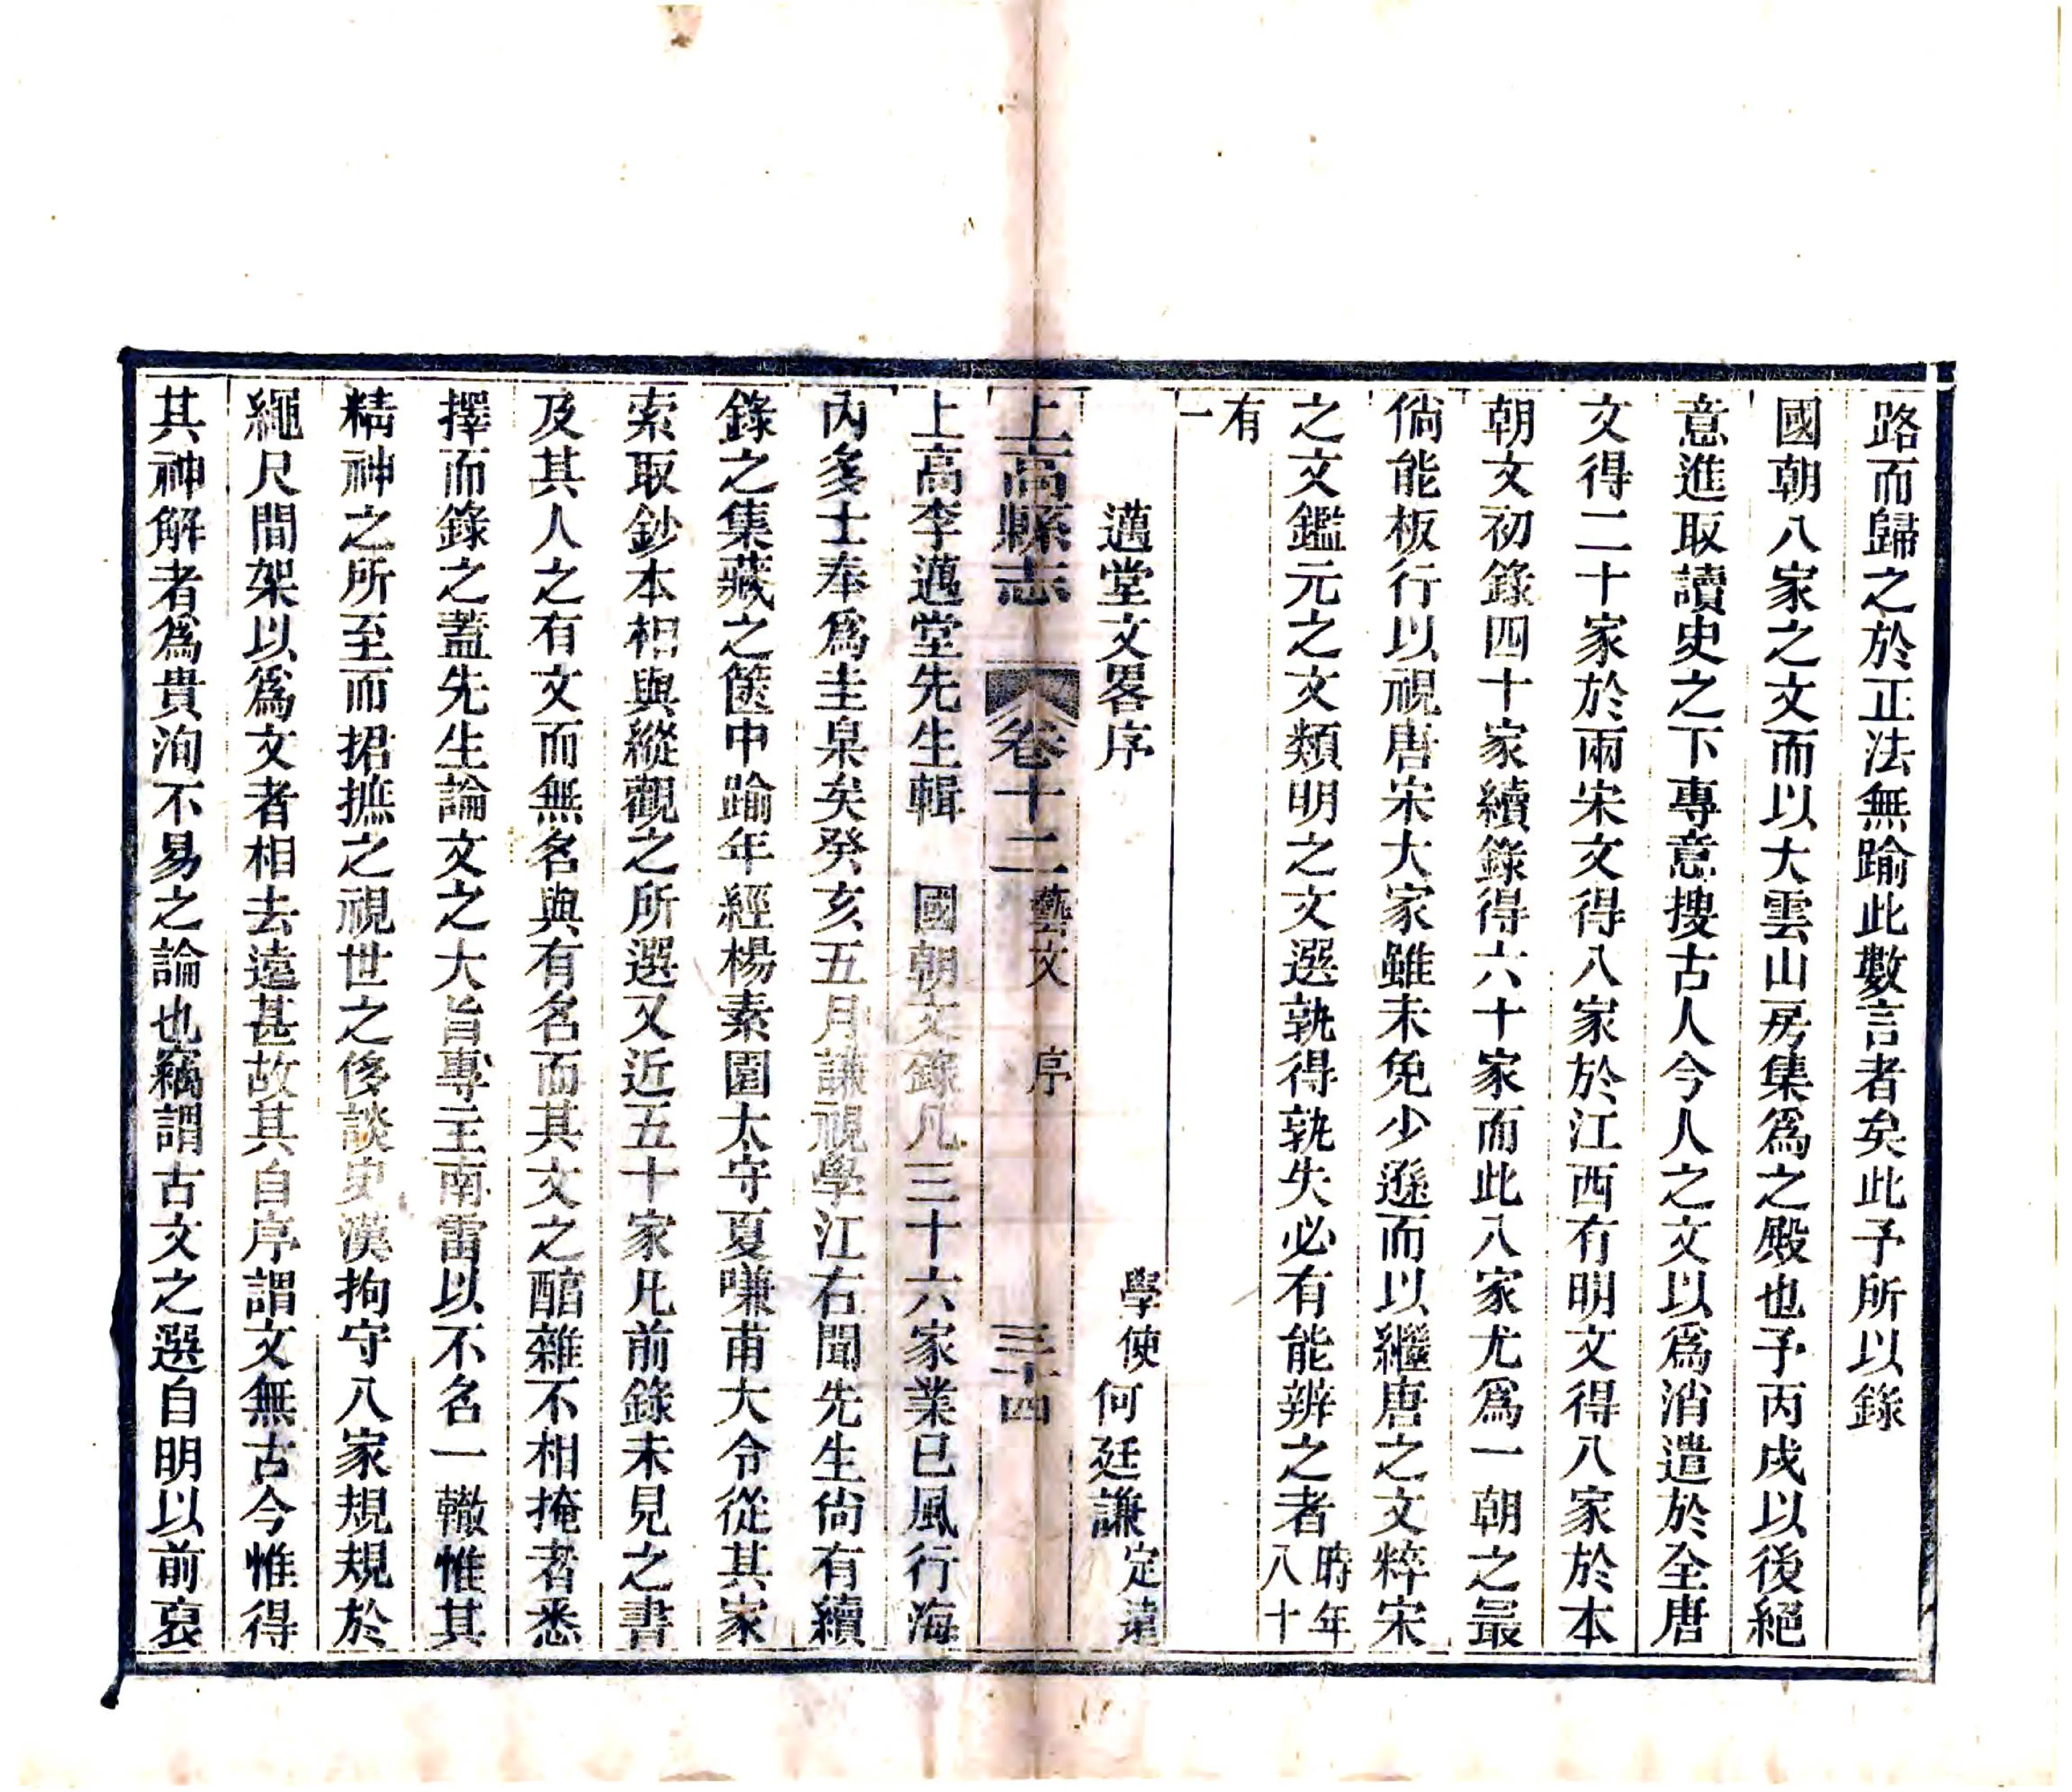 路而歸之於正法無踰此數言者矣此予所以錄
國朝八家之文而以大雲山房集爲之殿也予丙戌以後絕
意進取讀史之下專意搜古人今人之文以爲消遣於全唐
文得二十家於兩宋文得八家於江西有明文得八家於本
朝文初錄四十家續錄得六十家而此八家尤爲一朝之最
倘能板行以視唐宋大家雖未免少遜而以繼唐之文粹宋
之文鑑元之文類明之文選孰得孰失必有能辨之者時年八十
有一
邁堂文畧序 學使何廷謙定遠
上高縣志 卷十二 藝文 序 三十四
上高李邁堂先生輯 國朝文錄凡三十六家業已風行海
內多士奉爲圭臬矣癸亥五月謙視學江右聞先生尙有續
錄之集藏之篋中踰年經楊素園太守夏嗛甫大令從其家
索取鈔本相與縱觀之所選又近五十家凡前錄未見之書
及其人之有文而無名與有名而其文之醇雜不相掩者悉
擇而錄之蓋先生論文之大旨專主南雷以不名一轍惟其
精神之所至而捃摭之視世之侈談史漢拘守八家規規於
繩尺間架以爲文者相去遠甚故其自序謂文無古今惟得
其神解者爲貴洵不易之論也竊謂古文之選自明以前裒